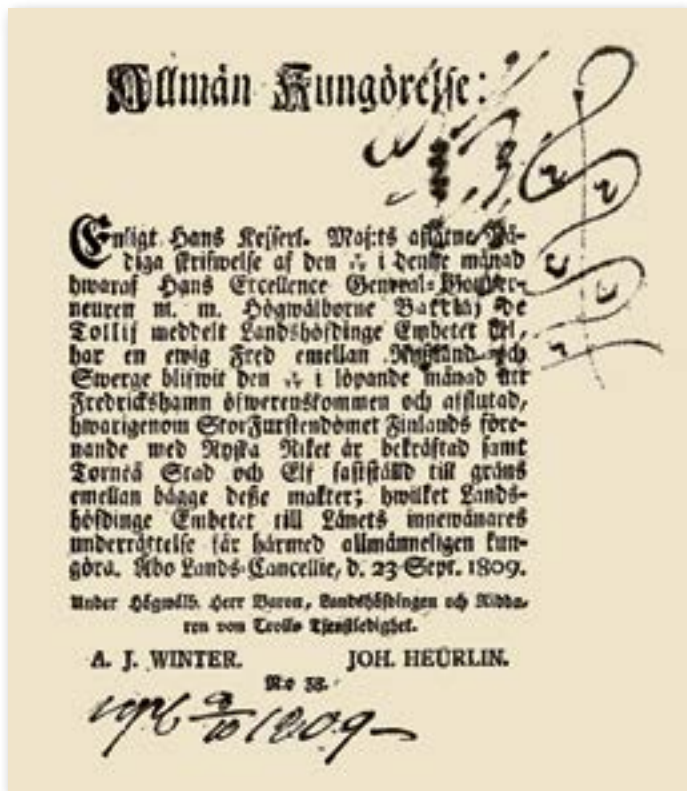 Allmän Kungörelse:
Enligt Hans Kejserl. Maj:ts aflåtne Nå-
diga skrifwelse af den i denne månad
hwaraf Hans Excellence General-Gouver-
neuren m. m. Högwälborne Barclaj de
Tollij meddelt Landshöfdinge Embetet del,
har en ewig Fred emellan Ryssland och
Swerge blifwit den i löpande månad uti
Fredrickshamn öfwerenskommen och afslutad,
hwarigenom StorFurstendömet Finlands före-
nande med Ryska Riket är bekräftad samt
Torneå Stad och Elf fastställd till gräns
emellan bägge desse makter; hwilket Lands-
höfdinge Embetet till Länets innewånares
underrättelse får härmed allmänneligen kun-
göra. Åbo Lands-Cancellie, d. 23 Sept. 1809.
Under Högwälb. Herr Baron, Landshöfdingen och Ridda-
ren von Troils Tjenstledighet.
A. J. WINTER. JOH. HEURLIN.
No 38.
1809